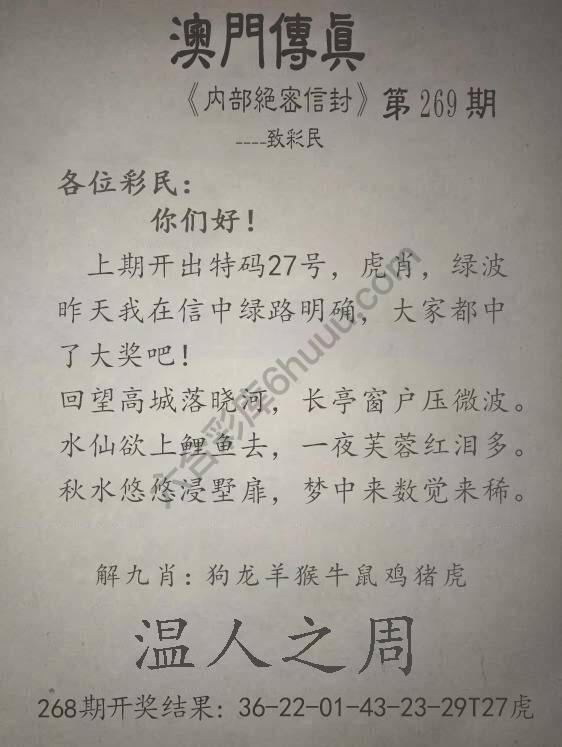 澳門傳眞
《内部絕密信封》第269期
----致彩民
各位彩民:
你们好!
上期开出特码27号,虎肖,绿波
昨天我在信中绿路明确,大家都中
了大奖吧!
回望高城落晓河,长亭窗户压微波。
水仙欲上鲤鱼去,一夜芙蓉红泪多。
秋水悠悠浸墅扉,梦中来数觉来稀。
六合彩库6huuu.com
解九肖:狗龙羊猴牛鼠鸡猪虎
温人之周
268期开奖结果:36-22-01-43-23-29T27虎